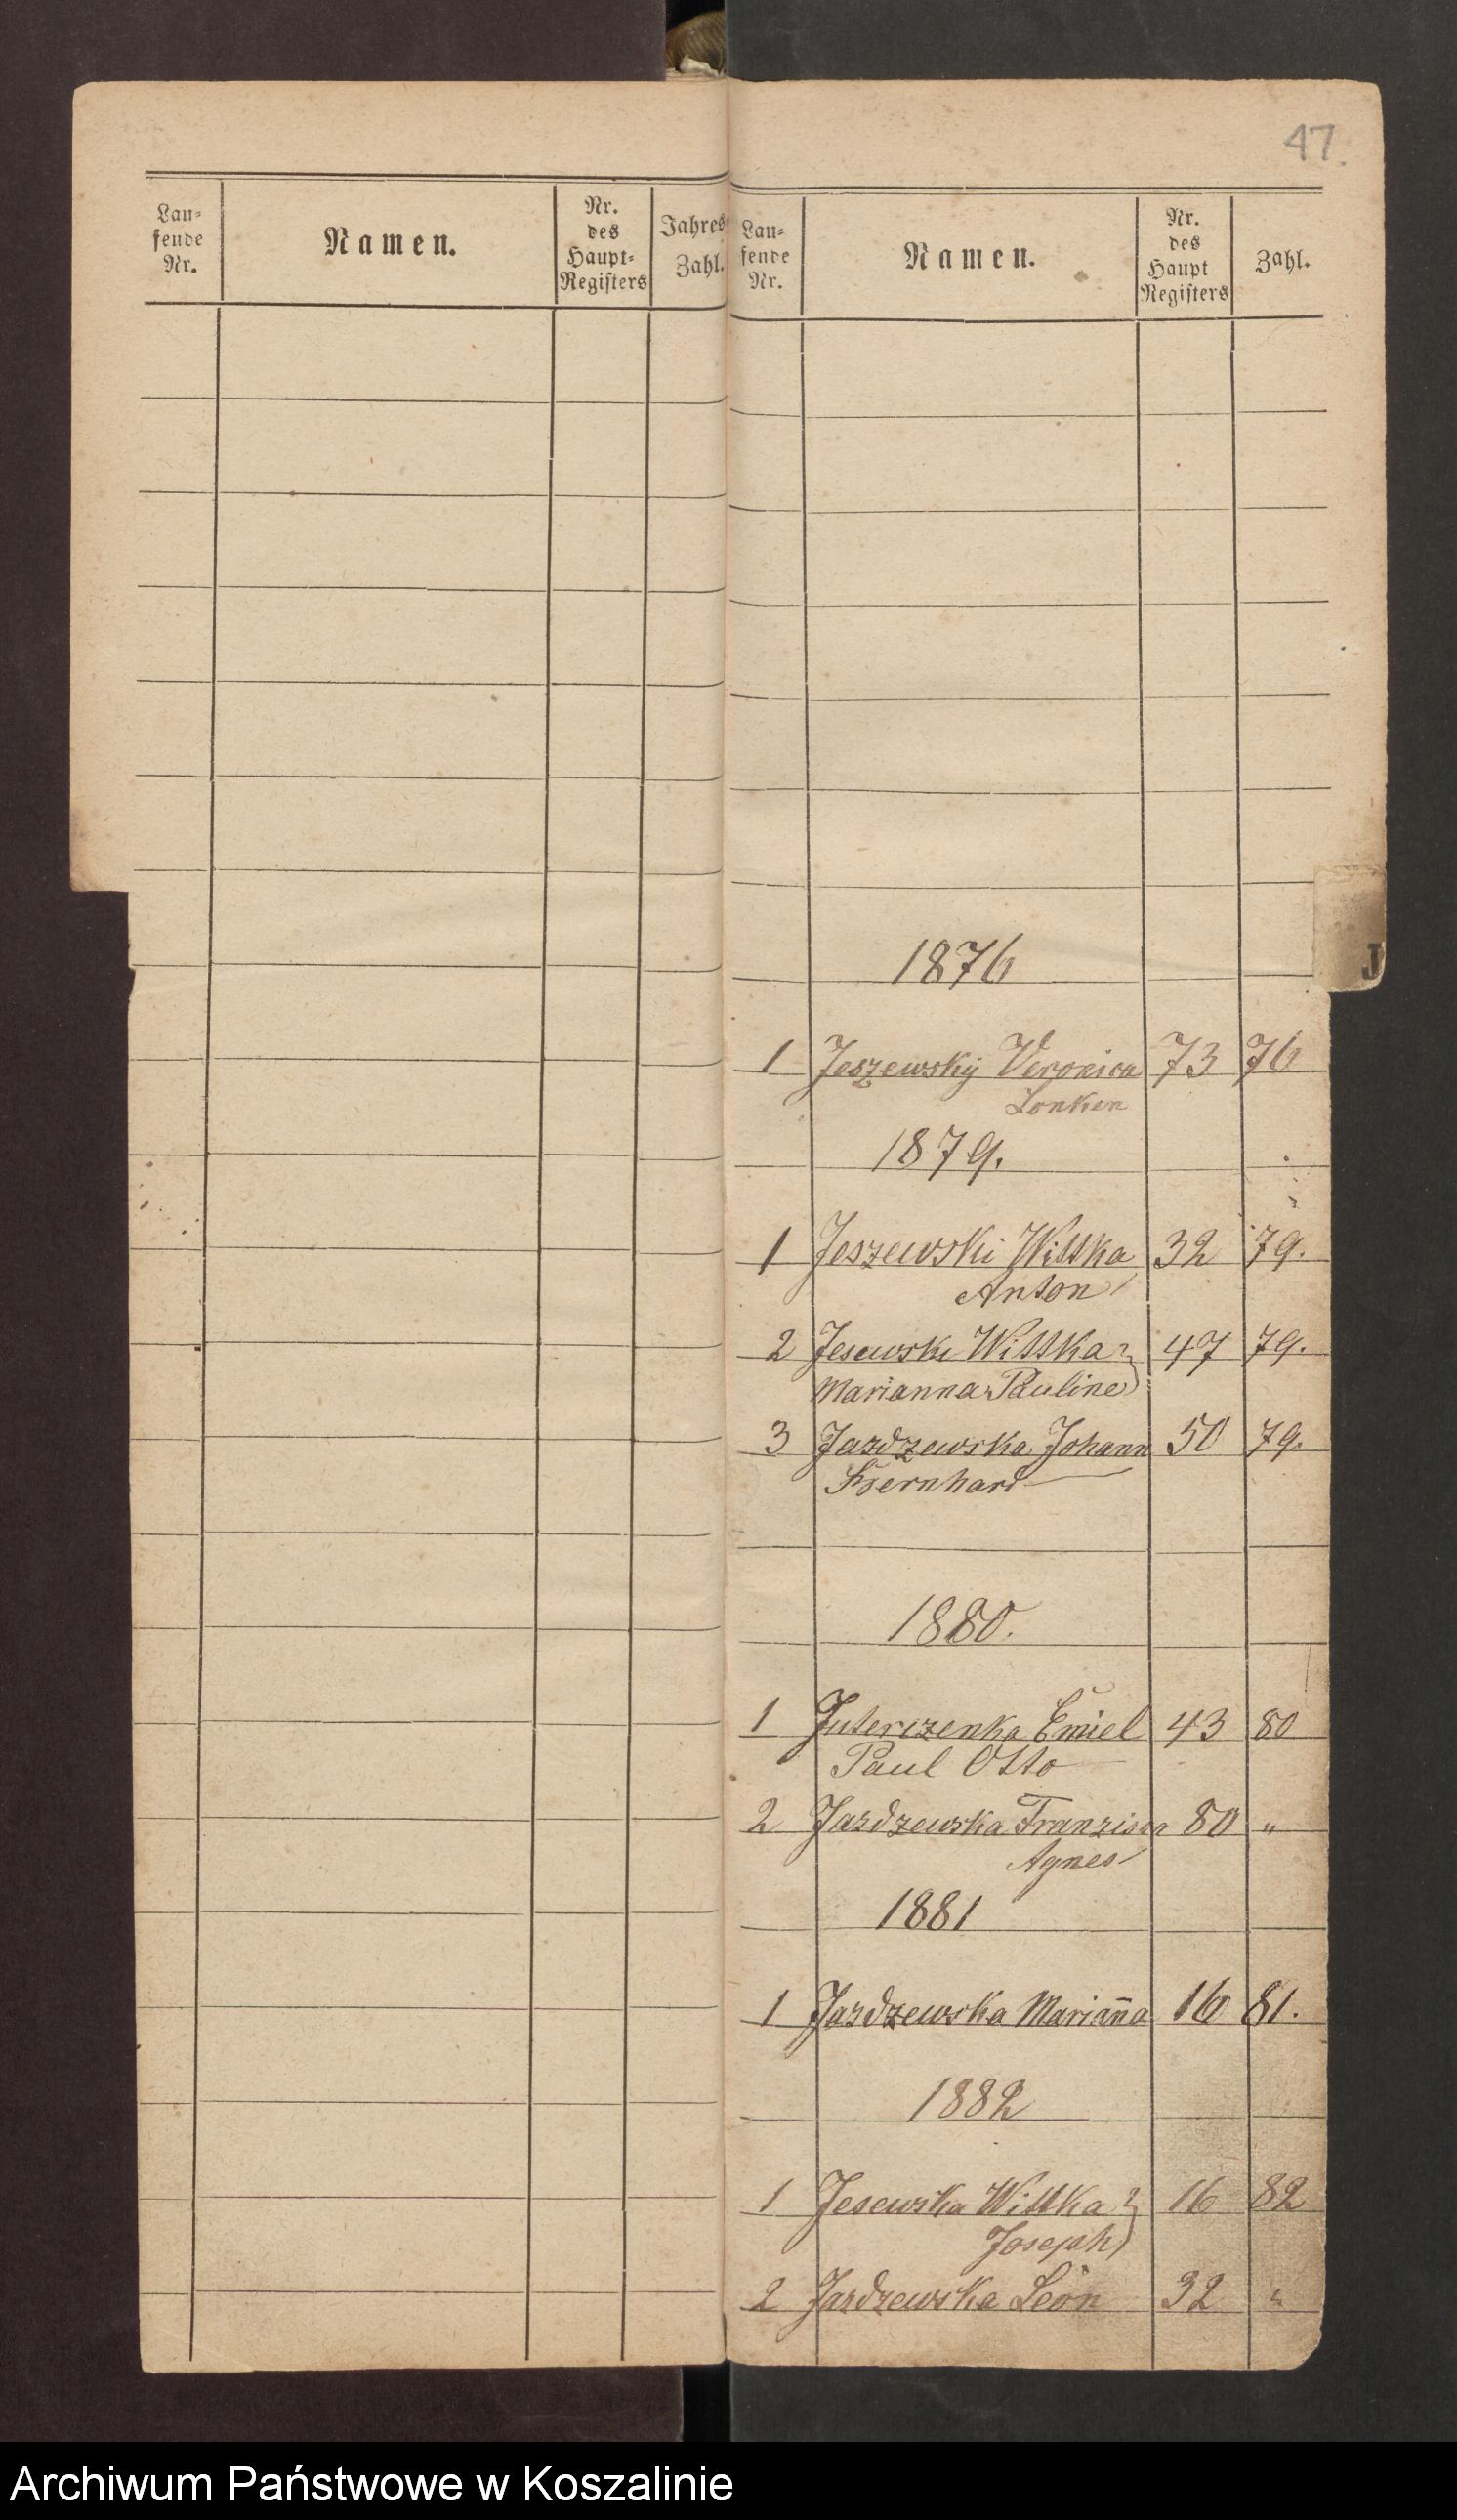 47.
Lau= fende Nr.
Namen.
Nr. des Haupt= Registers
Jahres Zahl.
Lau= fende Nr.
Namen.
Nr. des Haupt Registers
Zahl.
J
1876
1 Jeszewsky Veronica 73 76
Lonken
1879.
1 Jeszewski Wittka 32 79.
Anton
2 Jesewski Wittka 47 79.
Marianna Pauline
3 Jazdzewska Johann 50 79.
Bernhard
1880.
1 Juterczenka Emiel 43 80
Paul Otto
2 Jazdzewska Franzisca 80 "
Agnes
1881
1 Jazdzewska Mariana 16 81.
1882
1 Jesewska Wittka 16 82
Joseph
2 Jazdzewska Leon 32 "
Archiwum Państwowe w Koszalinie